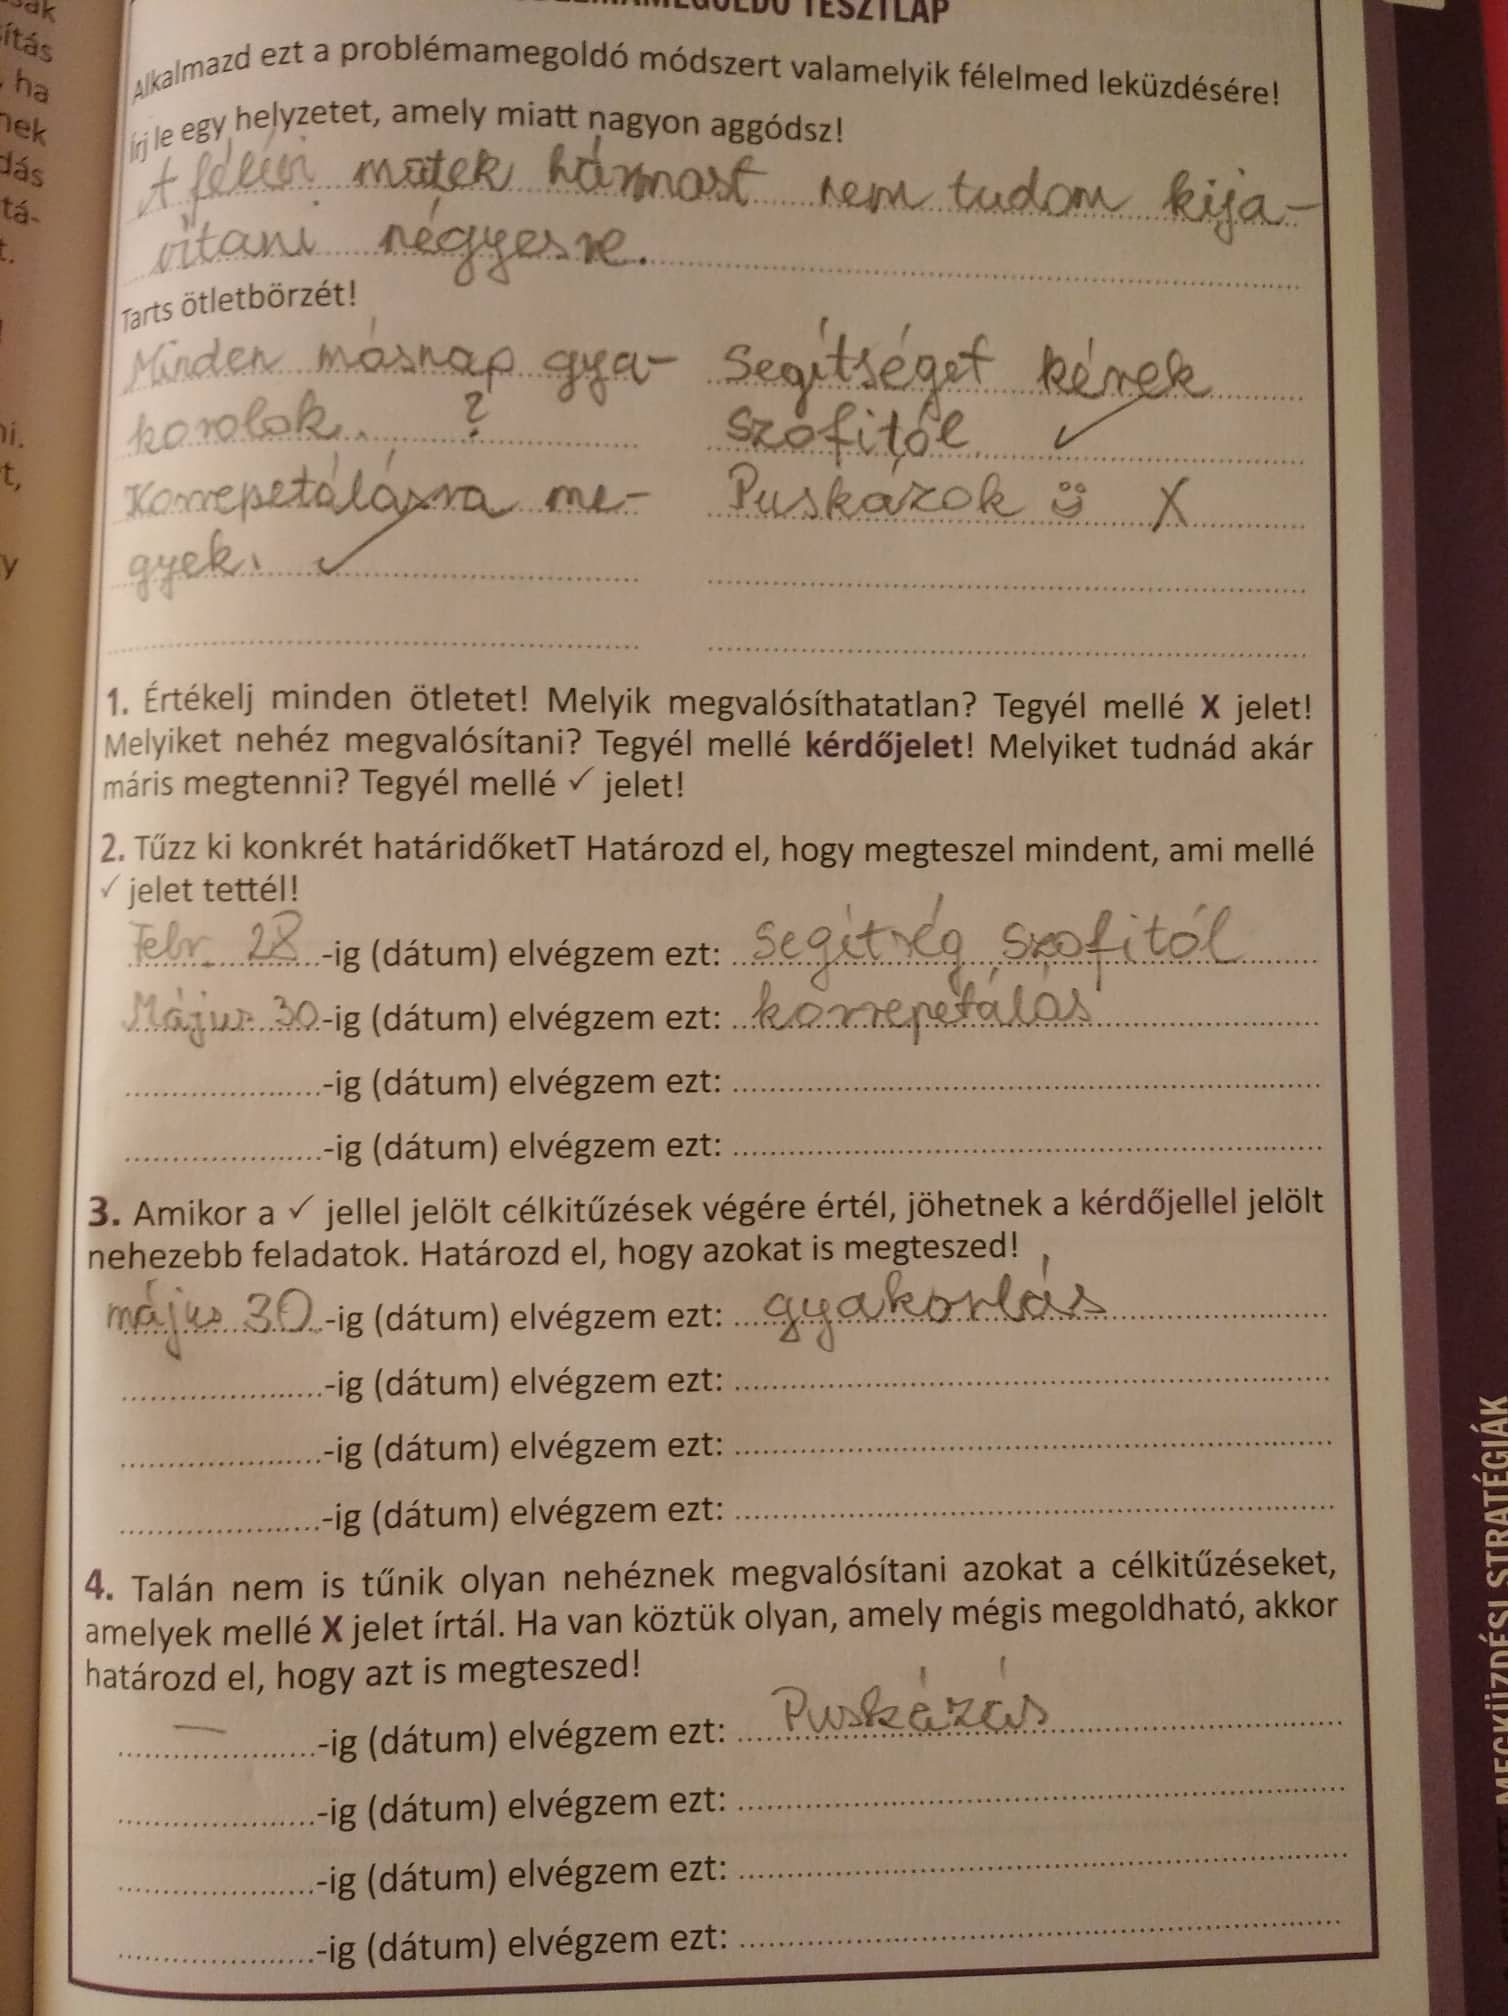 TESZTLAP
Alkalmazd ezt a problémamegoldó módszert valamelyik félelmed leküzdésére!
Írj le egy helyzetet, amely miatt nagyon aggódsz!
A félévi matek hármast nem tudom kija-
vítani négyesre.
Tarts ötletbörzét!
Minden másnap gya-
korolok. ?
Korrepetálásra me-
gyek. ✓
Segítséget kérek
Szofitól. ✓
Puskázok X
1. Értékelj minden ötletet! Melyik megvalósíthatatlan? Tegyél mellé X jelet!
Melyiket nehéz megvalósítani? Tegyél mellé kérdőjelet! Melyiket tudnád akár
máris megtenni? Tegyél mellé ✓ jelet!
2. Tűzz ki konkrét határidőketT Határozd el, hogy megteszel mindent, ami mellé
✓ jelet tettél!
Febr. 28 -ig (dátum) elvégzem ezt: Segítség Szofitól
Május 30 -ig (dátum) elvégzem ezt: korrepetálás
-ig (dátum) elvégzem ezt:
-ig (dátum) elvégzem ezt:
3. Amikor a ✓ jellel jelölt célkitűzések végére értél, jöhetnek a kérdőjellel jelölt
nehezebb feladatok. Határozd el, hogy azokat is megteszed!
május 30 -ig (dátum) elvégzem ezt: gyakorlás
-ig (dátum) elvégzem ezt:
-ig (dátum) elvégzem ezt:
-ig (dátum) elvégzem ezt:
4. Talán nem is tűnik olyan nehéznek megvalósítani azokat a célkitűzéseket,
amelyek mellé X jelet írtál. Ha van köztük olyan, amely mégis megoldható, akkor
határozd el, hogy azt is megteszed!
— -ig (dátum) elvégzem ezt: Puskázás
-ig (dátum) elvégzem ezt:
-ig (dátum) elvégzem ezt:
-ig (dátum) elvégzem ezt:
MEGKÜZDÉSI STRATÉGIÁK